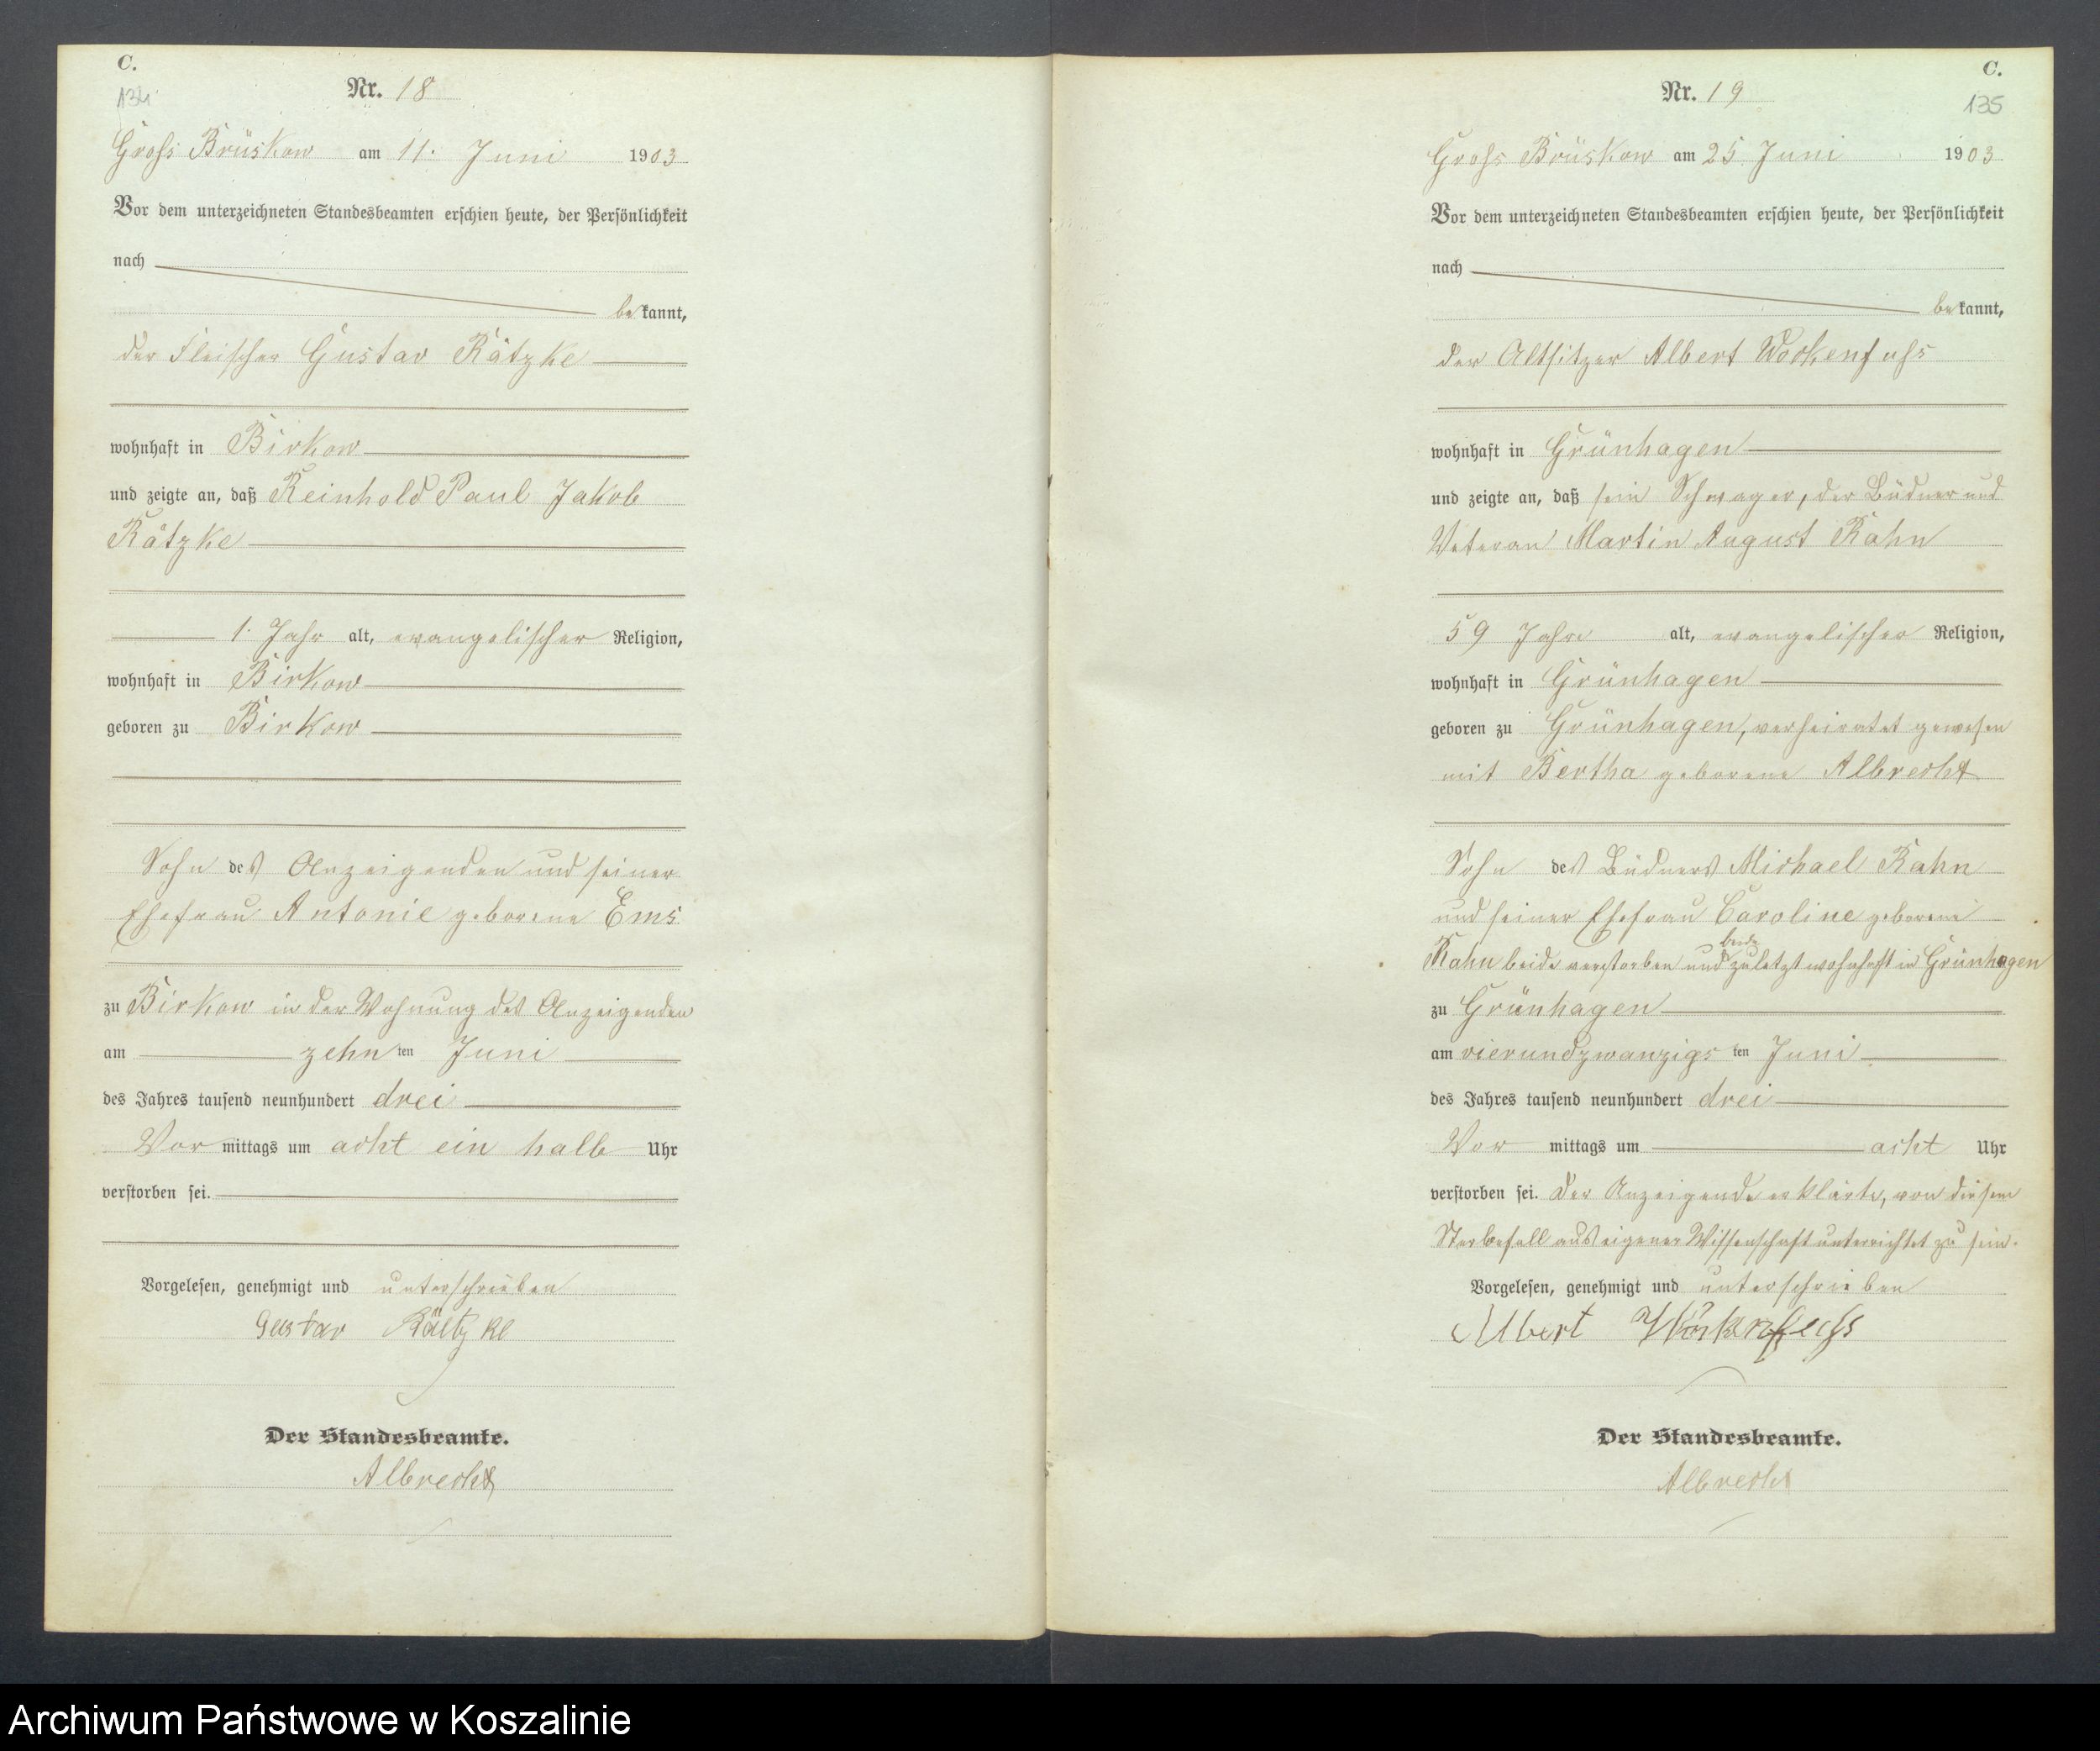 C.
134
Nr. 18
Groß Brüskow am 11. Juni 1903
Vor dem unterzeichneten Standesbeamten erschien heute, der Persönlichkeit
nach
bekannt,
der Fleischer Gustav Rätzke
wohnhaft in Birkow
und zeigte an, daß Reinhold Paul Jakob
Rätzke
1. Jahr alt, evangelischer Religion,
wohnhaft in Birkow
geboren zu Birkow
Sohn des Anzeigenden und seiner
Ehefrau Antonie geborene Ems
zu Birkow in der Wohnung des Anzeigenden
am zehnten Juni
des Jahres tausend neunhundert drei
Vormittags um acht ein halb Uhr
verstorben sei.
Vorgelesen, genehmigt und unterschrieben
Gustav Rätzke
Der Standesbeamte.
Albrecht
C.
135
Nr. 19
Groß Brüskow am 25 Juni 1903
Vor dem unterzeichneten Standesbeamten erschien heute, der Persönlichkeit
nach
bekannt,
der Altsitzer Albert Wockenfuß
wohnhaft in Grünhagen
und zeigte an, daß sein Schwager, der Büdner und
Veteran Martin August Rahn
59 Jahre alt, evangelischer Religion,
wohnhaft in Grünhagen
geboren zu Grünhagen, verheiratet gewesen
mit Bertha geborene Albrecht
Sohn des Büdners Michael Rahn
und seiner Ehefrau Caroline geborene
Rahn beide verstorben und beide zuletzt wohnhaft in Grünhagen
zu Grünhagen
am vierundzwanzigsten Juni
des Jahres tausend neunhundert drei
Vormittags um acht Uhr
verstorben sei. Der Anzeigende erklärte, von diesem
Sterbefall aus eigener Wissenschaft unterrichtet zu sein.
Vorgelesen, genehmigt und unterschrieben
Albert Wockenfuß
Der Standesbeamte.
Albrecht
Archiwum Państwowe w Koszalinie